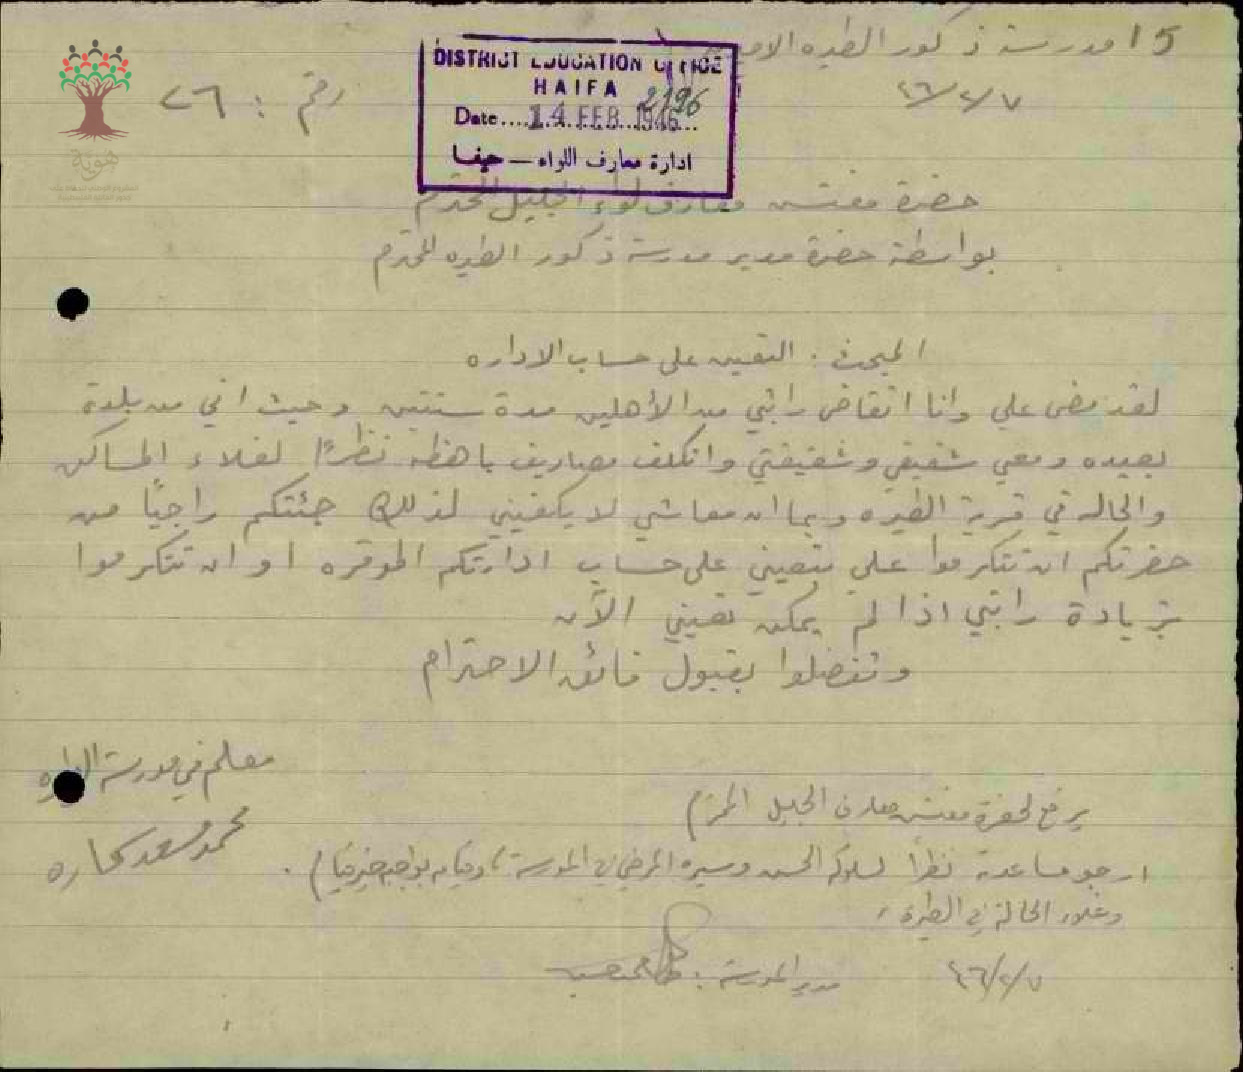 15 مدرسة ذكور الطيره
٤٦/٢/٧
رقم : ٢٦
DISTRICT EDUCATION OFFICE
HAIFA
2196
Date....14 FEB 1946...
ادارة معارف اللواء — حيفا
هوية
حضرة مفتش معارف لواء الجليل المحترم
بواسطة حضرة مدير مدرسة ذكور الطيره المحترم
المبحث : التعيين على حساب الاداره
لقد مضى علي وانا اتقاضى راتبي من الأهلين مدة سنتين وحيث اني من بلدة
بعيده ومعي شقيقي وشقيقتي واتكلف مصاريف باهظه نظرًا لغلاء المساكن
والحاله في قرية الطيره وبما ان معاشي لا يكفيني لذلك جئتكم راجيًا من
حضرتكم ان تتكرموا علي بتعييني على حساب ادارتكم الموقره او ان تتكرموا
بزيادة راتبي اذا لم يمكن تعييني الآن
وتفضلوا بقبول فائق الاحترام
معلم في مدرسة الطيره
محمد سعد
يرفع لحضرة مفتش معارف الجليل المحترم
ارجو مساعدته نظراً لسلوكه الحسن وسيره المرضي في المدرسة (وقيامه بواجبه خير قيام) .
وغلاء الحالة في الطيرة ،
٤٦/٢/٧
مدير المدرسة :